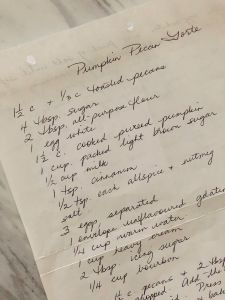 Pumpkin Pecan Torte
1½ c + ⅓ c toasted pecans
4 tbsp. sugar
2 tbsp. all-purpose flour
1 egg white
1½ c. cooked pureed pumpkin
1 cup packed light brown sugar
½ cup milk
1 tsp. cinnamon
½ tsp. each allspice + nutmeg
salt
3 eggs, separated
1 envelope unflavoured gelatin
¼ cup warm water
1 cup heavy cream
2 tbsp icing sugar
¼ cup bourbon
½ c. pecans + 2 tbsp
chopped. Add the
Press
bake